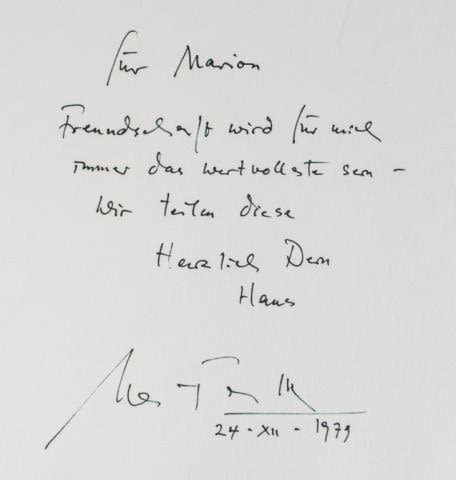 für Marion
Freundschaft wird für mich
immer das wertvollste sein -
wir teilen diese
Herzlich Dein
Hans
24 - XII - 1979